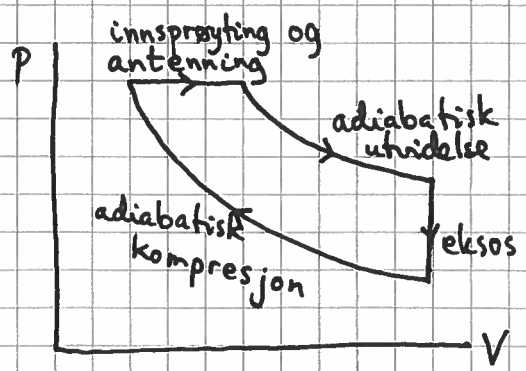 innsprøyting og
P
antenning
adiabatisk
utvidelse
adiabatisk
kompresjon
eksos
V